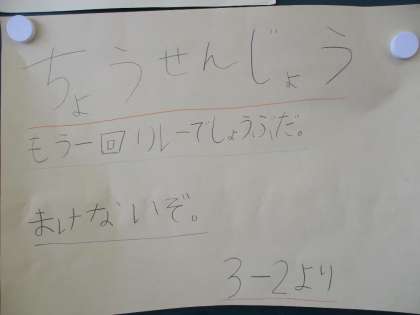 ちょうせんじょう
もう一回リレーでしょうぶだ。
まけないぞ。
3-2より